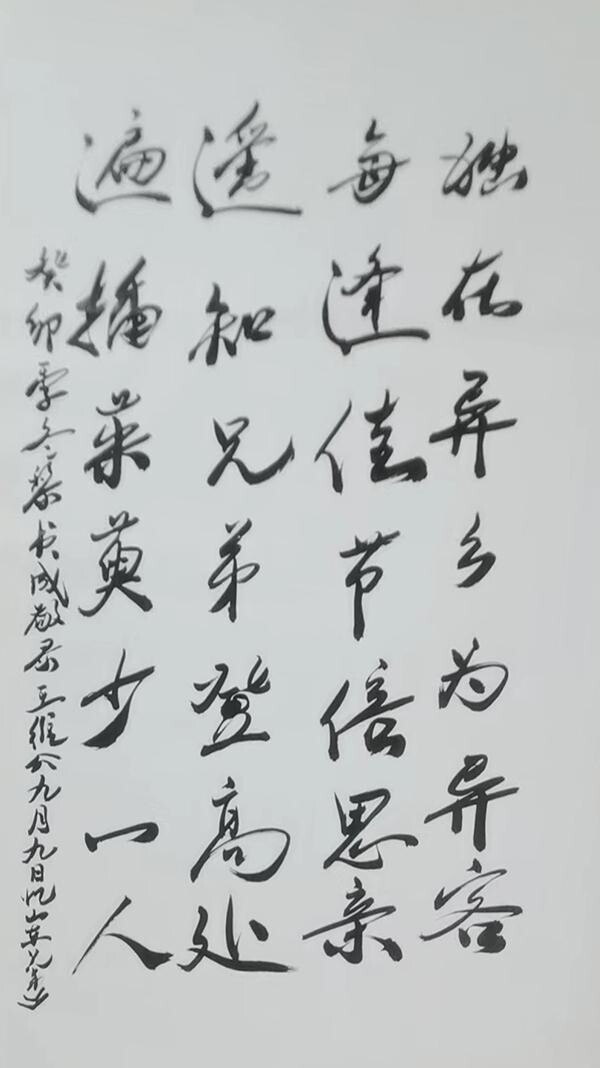 独在异乡为异客
每逢佳节倍思亲
遥知兄弟登高处
遍插茱萸少一人
癸卯季冬黎成敬录王维公九月九日忆山东兄弟